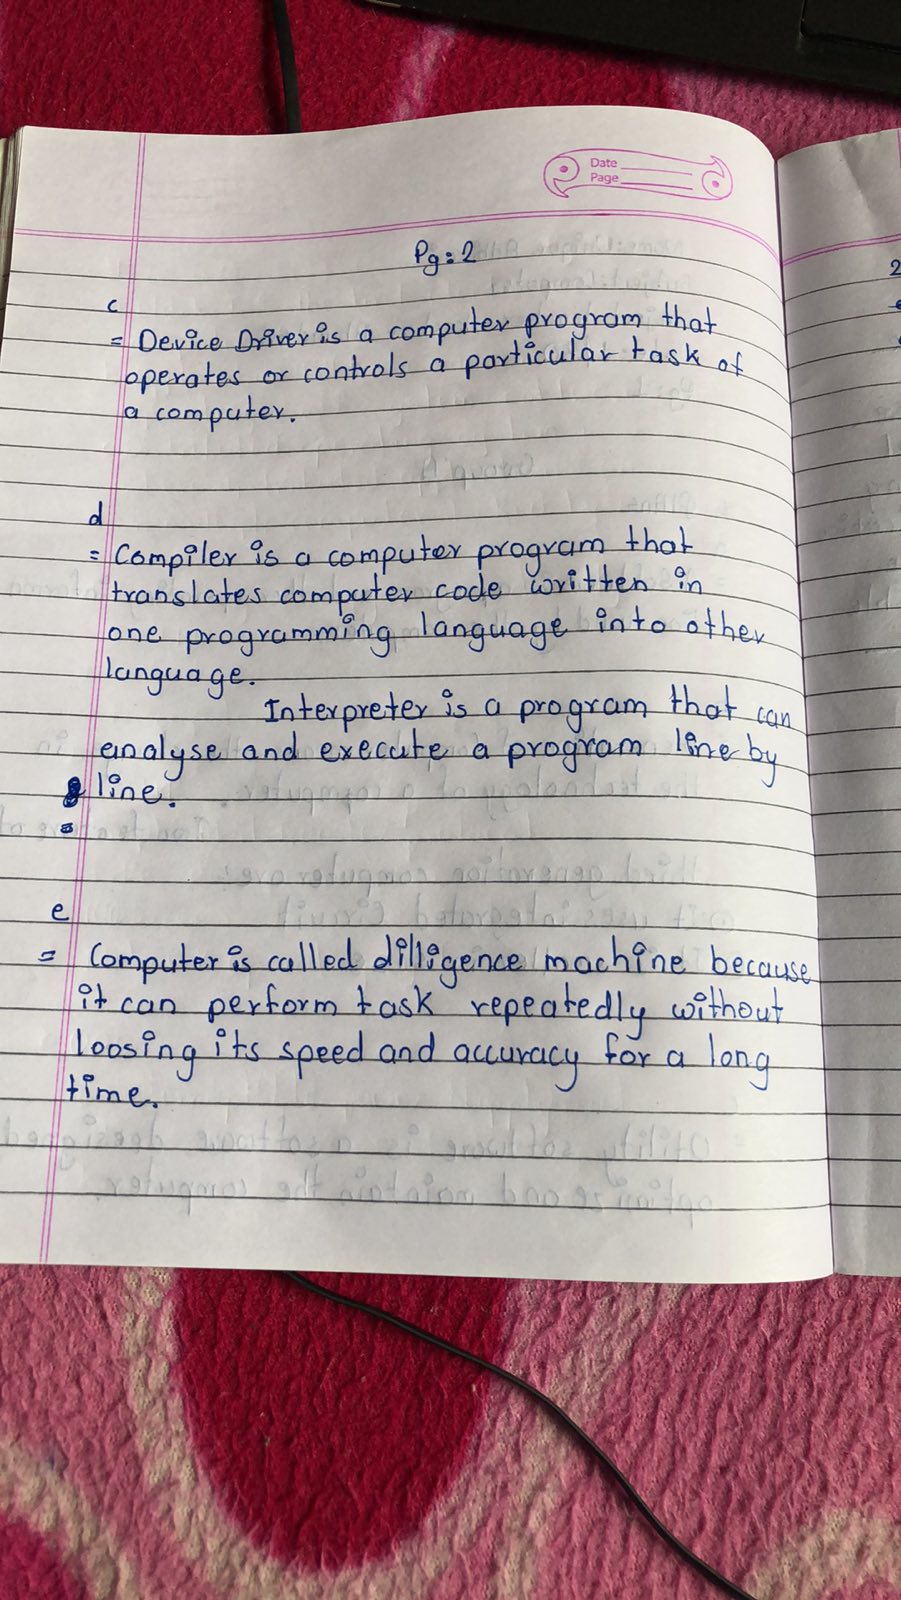 Date
Page
Pg:2
c
= Device Driver is a computer program that
operates or controls a particular task of
a computer.
d
= Compiler is a computer program that
translates computer code written in
one programming language into other
language.
Interpreter is a program that can
analyse and execute a program line by
line.
=
e
= Computer is called dilligence machine because
it can perform task repeatedly without
loosing its speed and accuracy for a long
time.
2